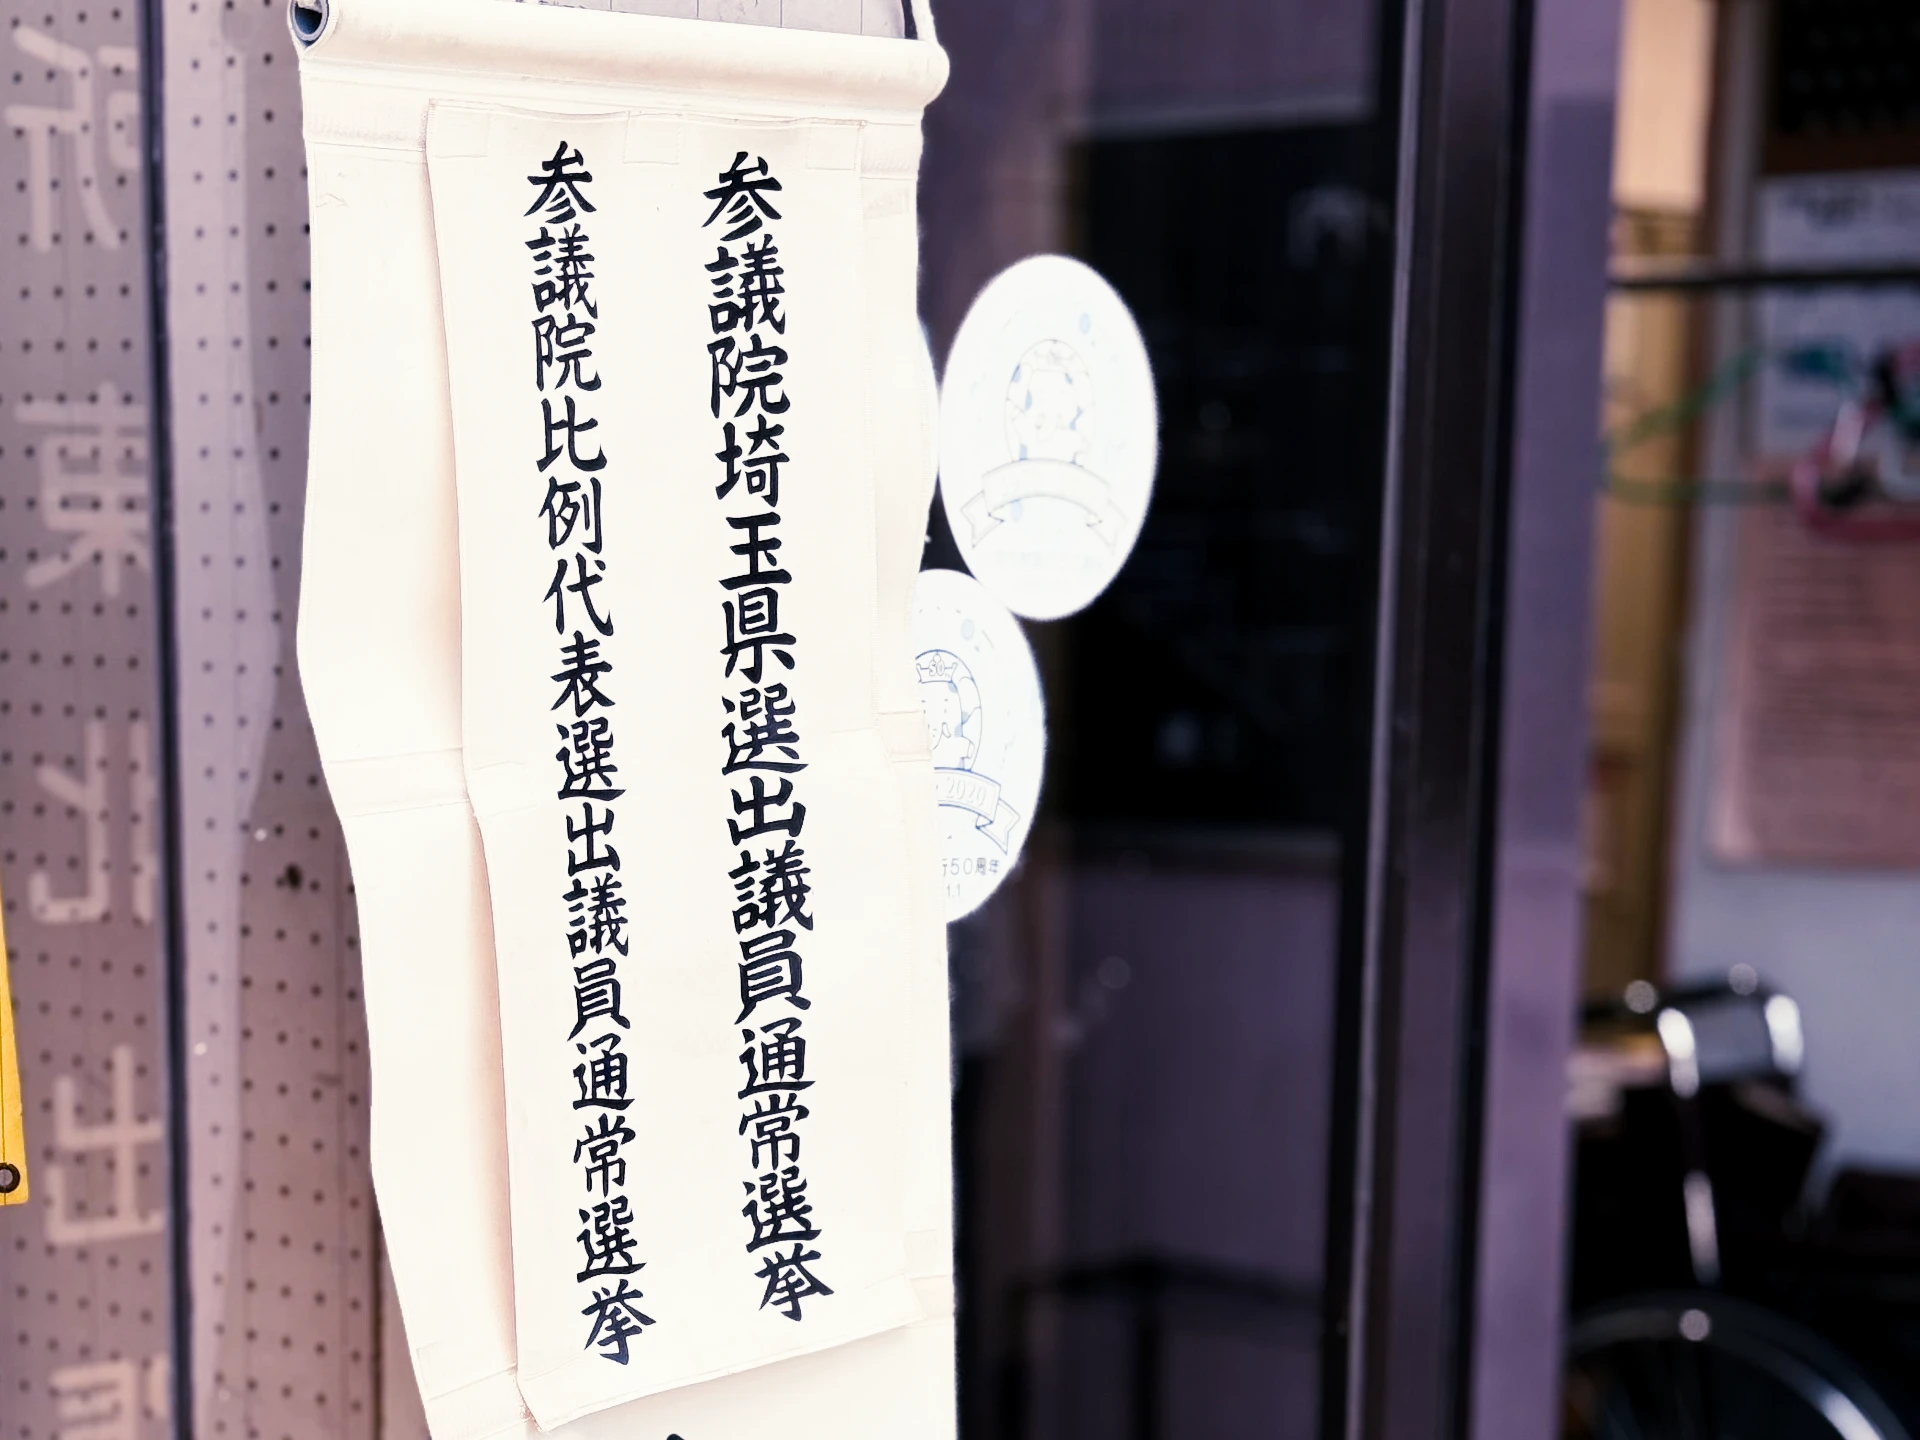 参議院埼玉県選出議員通常選挙
参議院比例代表選出議員通常選挙
50
2020
行50周年
1.1